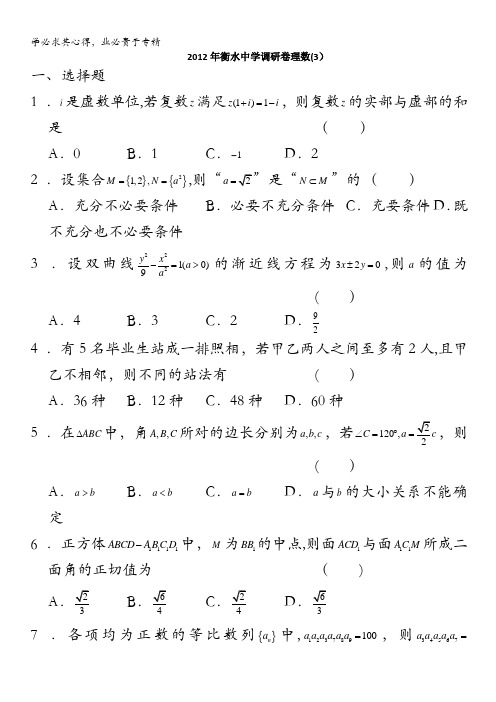 学必求其心得，业必贵于专精
2012年衡水中学调研卷理数(3）
一、选择题
1 ．i是虚数单位,若复数z满足z(1+i)=1−i，则复数z的实部与虚部的和
是 （ ）
A．0 B．1 C．−1 D．2
2 ．设集合M={1,2},N={a²},则“a=√2”是“N⊂M”的 （ ）
A．充分不必要条件 B．必要不充分条件 C．充要条件D．既
不充分也不必要条件
3 ．设双曲线y²/9−x²/a²=1(a>0)的渐近线方程为3x±2y=0,则a的值为
（ ）
A．4 B．3 C．2 D．9/2
4 ．有5名毕业生站成一排照相，若甲乙两人之间至多有2人,且甲
乙不相邻，则不同的站法有 （ ）
A．36种 B．12种 C．48种 D．60种
5 ．在ΔABC中，角A,B,C所对的边长分别为a,b,c，若∠C=120°,a=√2/2 c，则
（ ）
A．a>b B．a<b C．a=b D．a与b的大小关系不能确
定
6 ．正方体ABCD−A₁B₁C₁D₁中，M为BB₁的中点,则面ACD₁与面A₁C₁M所成二
面角的正切值为 （ ）
A．√2/3 B．√6/4 C．√2/4 D．√6/3
7 ．各项均为正数的等比数列{aₙ}中,a₁a₂a₃a₇a₈a₉=100，则a₃a₄a₅a₆a₇=